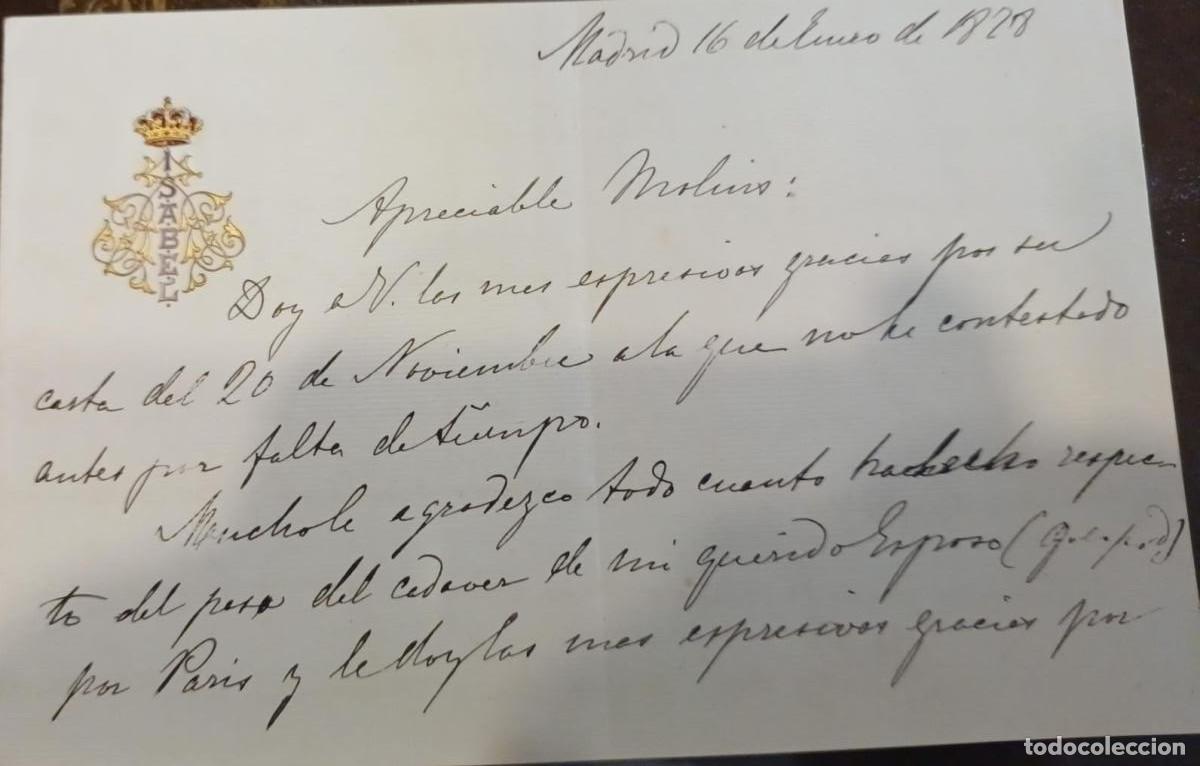 Madrid 16 de Enero de 1878
ISABEL
Apreciable Molins:
Doy a V. las mas espresivas gracias por su
carta del 20 de Noviembre a la que no he contestado
antes por falta de tiempo.
Mucho le agradezco todo cuanto ha hecho respec-
to del paso del cadaver de mi querido Esposo (q.e.p.d.)
por Paris y le doy las mas espresivas gracias por
todocoleccion